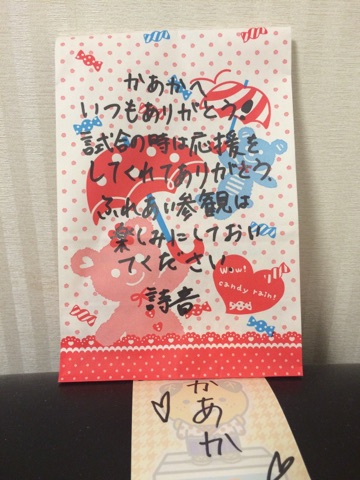 かあかへ
いつもありがとう!
試合の時は応援を
してくれてありがとう
ふれあい参観は
楽しみにしておい
てください。
詩音
Wow!
candy rain!
かあか